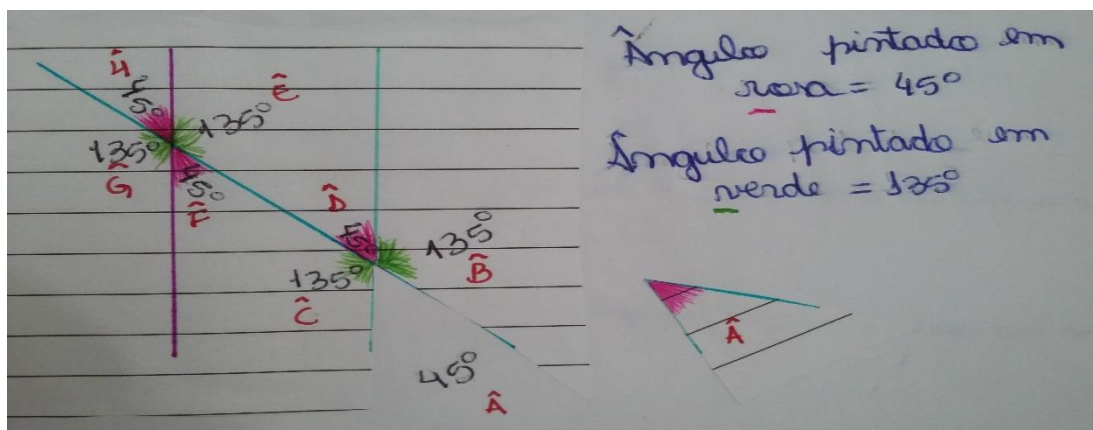 Ĥ
45°
Ê
135°
135°
Ĝ
45°
F̂
D̂
45°
135°
B̂
135°
Ĉ
45°
Â
Ângulo pintado em
rosa = 45°
Ângulo pintado em
verde = 135°
Â